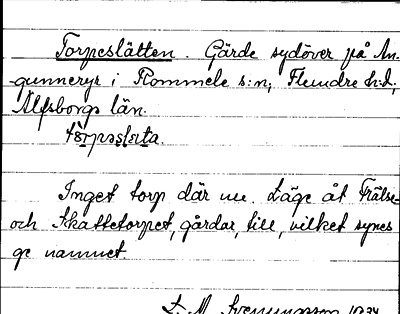 Torpeslätten. Gärde sydöver på An-
gunneryr i Rommele s:n, Flundre h:d,
Älfsborgs län.
Inget torp där nu. Läge åt Frälse-
och Skattetorpet, gårdar, till, vilket synes
ge namnet.